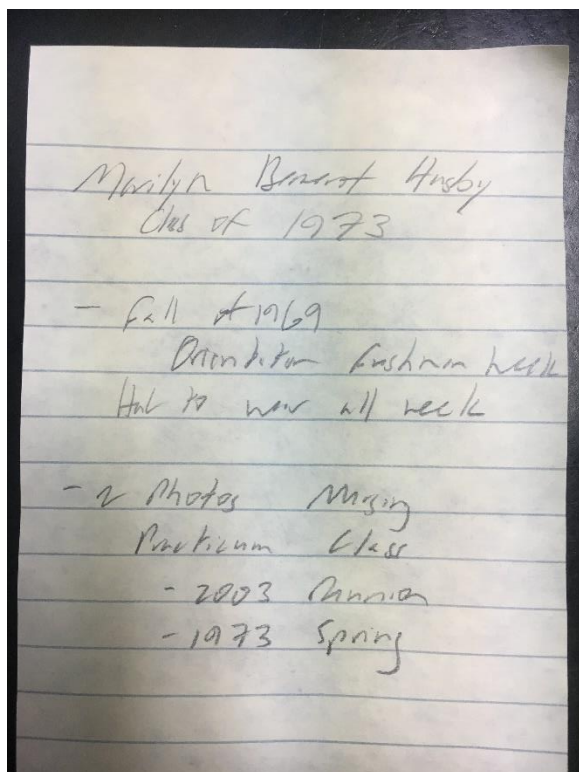 Marilyn Husby
Class of 1973
- Fall of 1969
Orientation Freshman week
Hat to wear all week
- 2 Photos Nursing
Practicum Class
- 2003 Reunion
- 1973 Spring